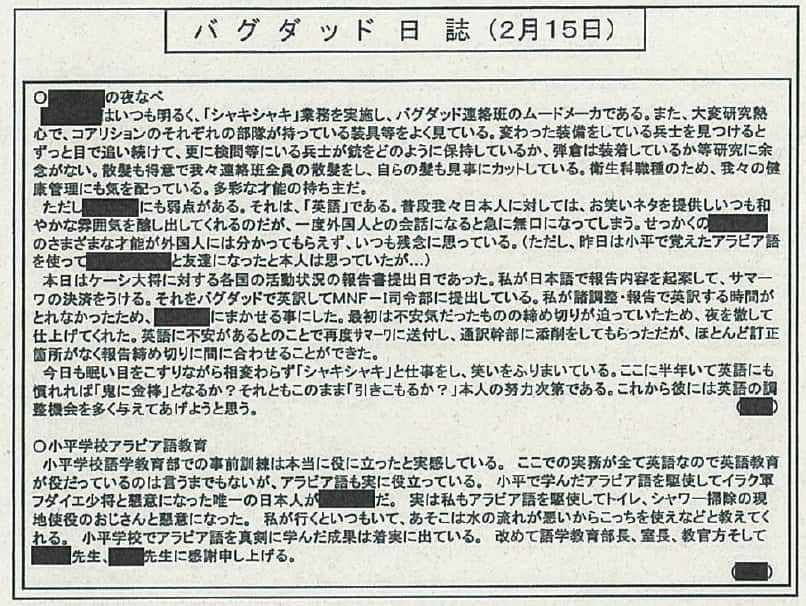 バグダッド日誌（２月１５日）
○の夜なべ
はいつも明るく、「シャキシャキ」業務を実施し、バグダッド連絡班のムードメーカである。また、大変研究熱
心で、コアリションのそれぞれの部隊が持っている装具等をよく見ている。変わった装備をしている兵士を見つけると
ずっと目で追い続けて、更に検問等にいる兵士が銃をどのように保持しているか、弾倉は装着しているか等研究に余
念がない。散髪も得意で我々連絡班全員の散髪をし、自らの髪も見事にカットしている。衛生科職種のため、我々の健
康管理にも気を配っている。多彩な才能の持ち主だ。
ただしにも弱点がある。それは、「英語」である。普段我々日本人に対しては、お笑いネタを提供しいつも和
やかな雰囲気を醸し出してくれるのだが、一度外国人との会話になると急に無口になってしまう。せっかくの
のさまざまな才能が外国人には分かってもらえず、いつも残念に思っている。（ただし、昨日は小平で覚えたアラビア語
を使ってと友達になったと本人は思っていたが…）
本日はケーシ大将に対する各国の活動状況の報告書提出日であった。私が日本語で報告内容を起案して、サマー
ワの決済をうける。それをバグダッドで英訳してＭＮＦ－Ｉ司令部に提出している。私が諸調整・報告で英訳する時間が
とれなかったため、にまかせる事にした。最初は不安気だったものの締め切りが迫っていたため、夜を徹して
仕上げてくれた。英語に不安があるとのことで再度ｻﾏｰﾜに送付し、通訳幹部に添削をしてもらっただが、ほとんど訂正
箇所がなく報告締め切りに間に合わせることができた。
今日も眠い目をこすりながら相変わらず「シャキシャキ」と仕事をし、笑いをふりまいている。ここに半年いて英語にも
慣れれば「鬼に金棒」となるか？それともこのまま「引きこもるか？」本人の努力次第である。これから彼には英語の調
整機会を多く与えてあげようと思う。
（）
○小平学校アラビア語教育
小平学校語学教育部での事前訓練は本当に役に立ったと実感している。 ここでの実務が全て英語なので英語教育
が役だっているのは言うまでもないが、アラビア語も実に役立っている。 小平で学んだアラビア語を駆使してイラク軍
フダイエ少将と懇意になった唯一の日本人がだ。 実は私もアラビア語を駆使してトイレ、シャワー掃除の現
地使役のおじさんと懇意になった。 私が行くといつもいて、あそこは水の流れが悪いからこっちを使えなどと教えてく
れる。 小平学校でアラビア語を真剣に学んだ成果は着実に出ている。 改めて語学教育部長、室長、教官方そして
先生、先生に感謝申し上げる。
（）